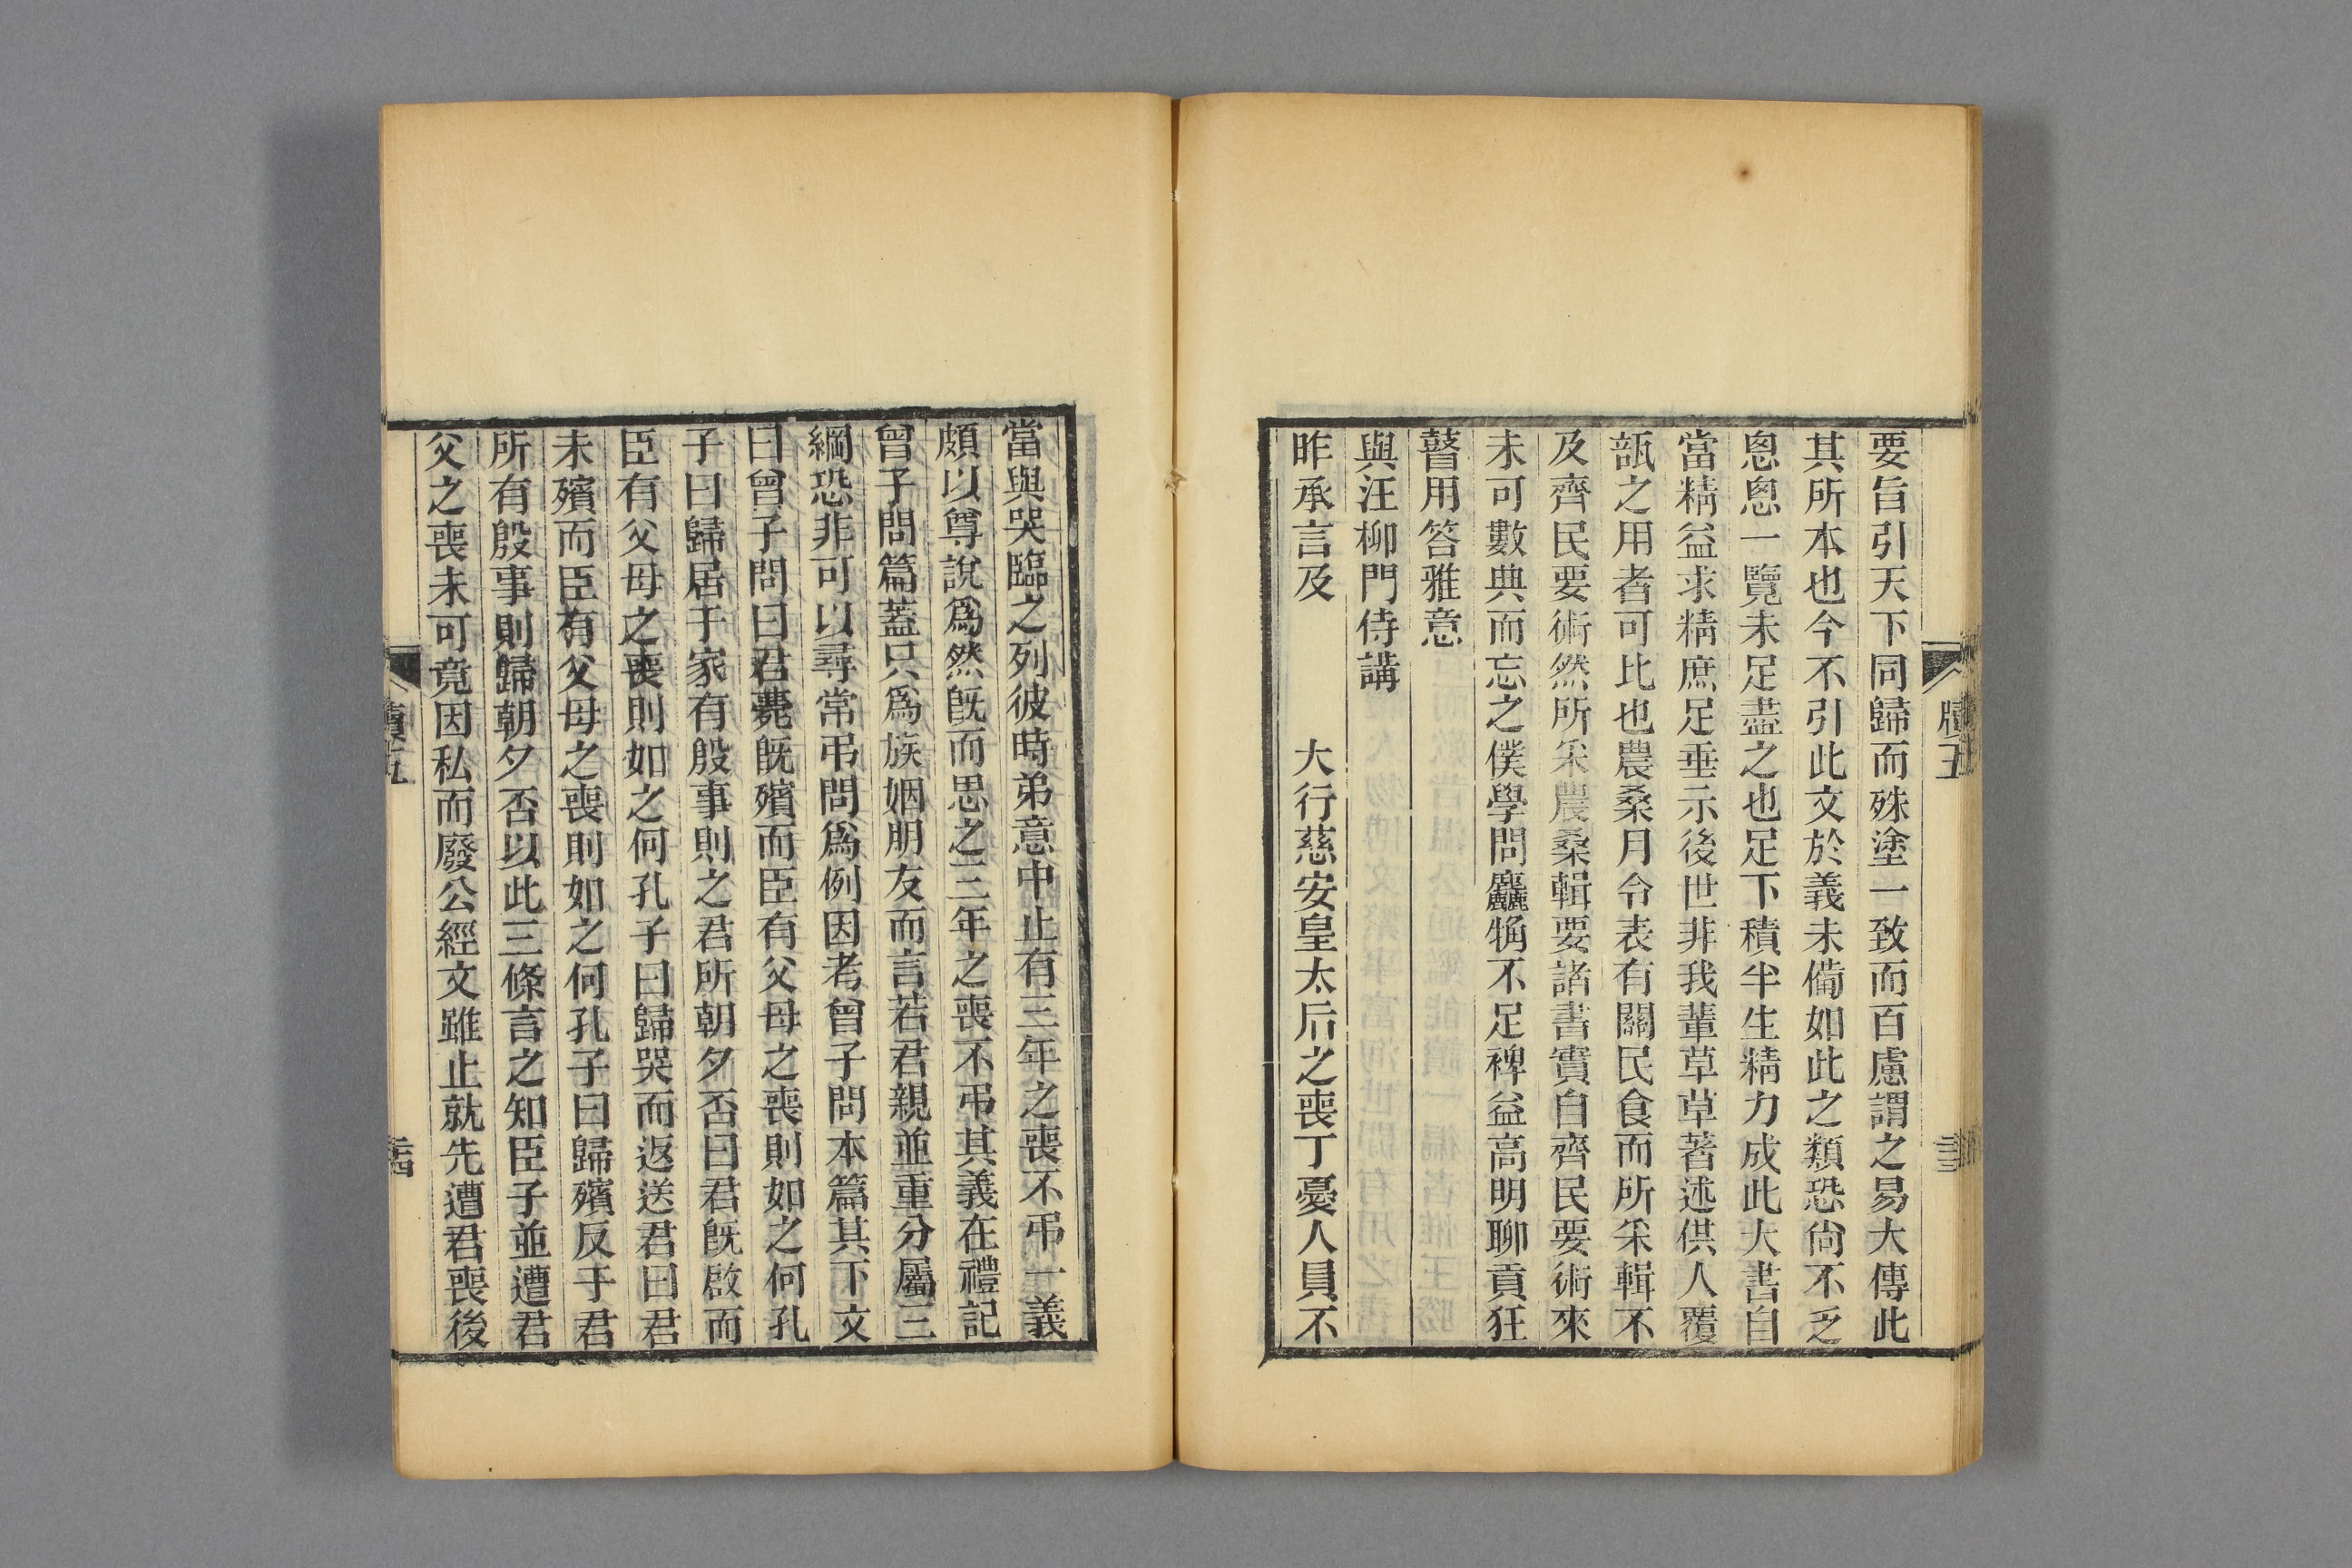 要旨引天下同歸而殊塗一致而百慮謂之易大傳此
其所本也今不引此文於義未備如此之類恐尙不乏
悤悤一覽未足盡之也足下積半生精力成此大書自
當精益求精庶足垂示後世非我輩草草著述供人覆
瓿之用者可比也農桑月令表有關民食而所采輯不
及齊民要術然所采農桑輯要諸書實自齊民要術來
未可數典而忘之僕學問麤觕不足裨益高明聊貢狂
瞽用答雅意
與汪柳門侍講
昨承言及　　　大行慈安皇太后之喪丁憂人員不
當與哭臨之列彼時弟意中止有三年之喪不弔一義
頗以尊說爲然旣而思之三年之喪不弔其義在禮記
曾子問篇蓋只爲族姻朋友而言若君親並重分屬三
綱恐非可以尋常弔問爲例因考曾子問本篇其下文
曰曾子問曰君薨旣殯而臣有父母之喪則如之何孔
子曰歸居于家有殷事則之君所朝夕否曰君旣啟而
臣有父母之喪則如之何孔子曰歸哭而返送君曰君
未殯而臣有父母之喪則如之何孔子曰歸殯反于君
所有殷事則歸朝夕否以此三條言之知臣子並遭君
父之喪未可竟因私而廢公經文雖止就先遭君喪後